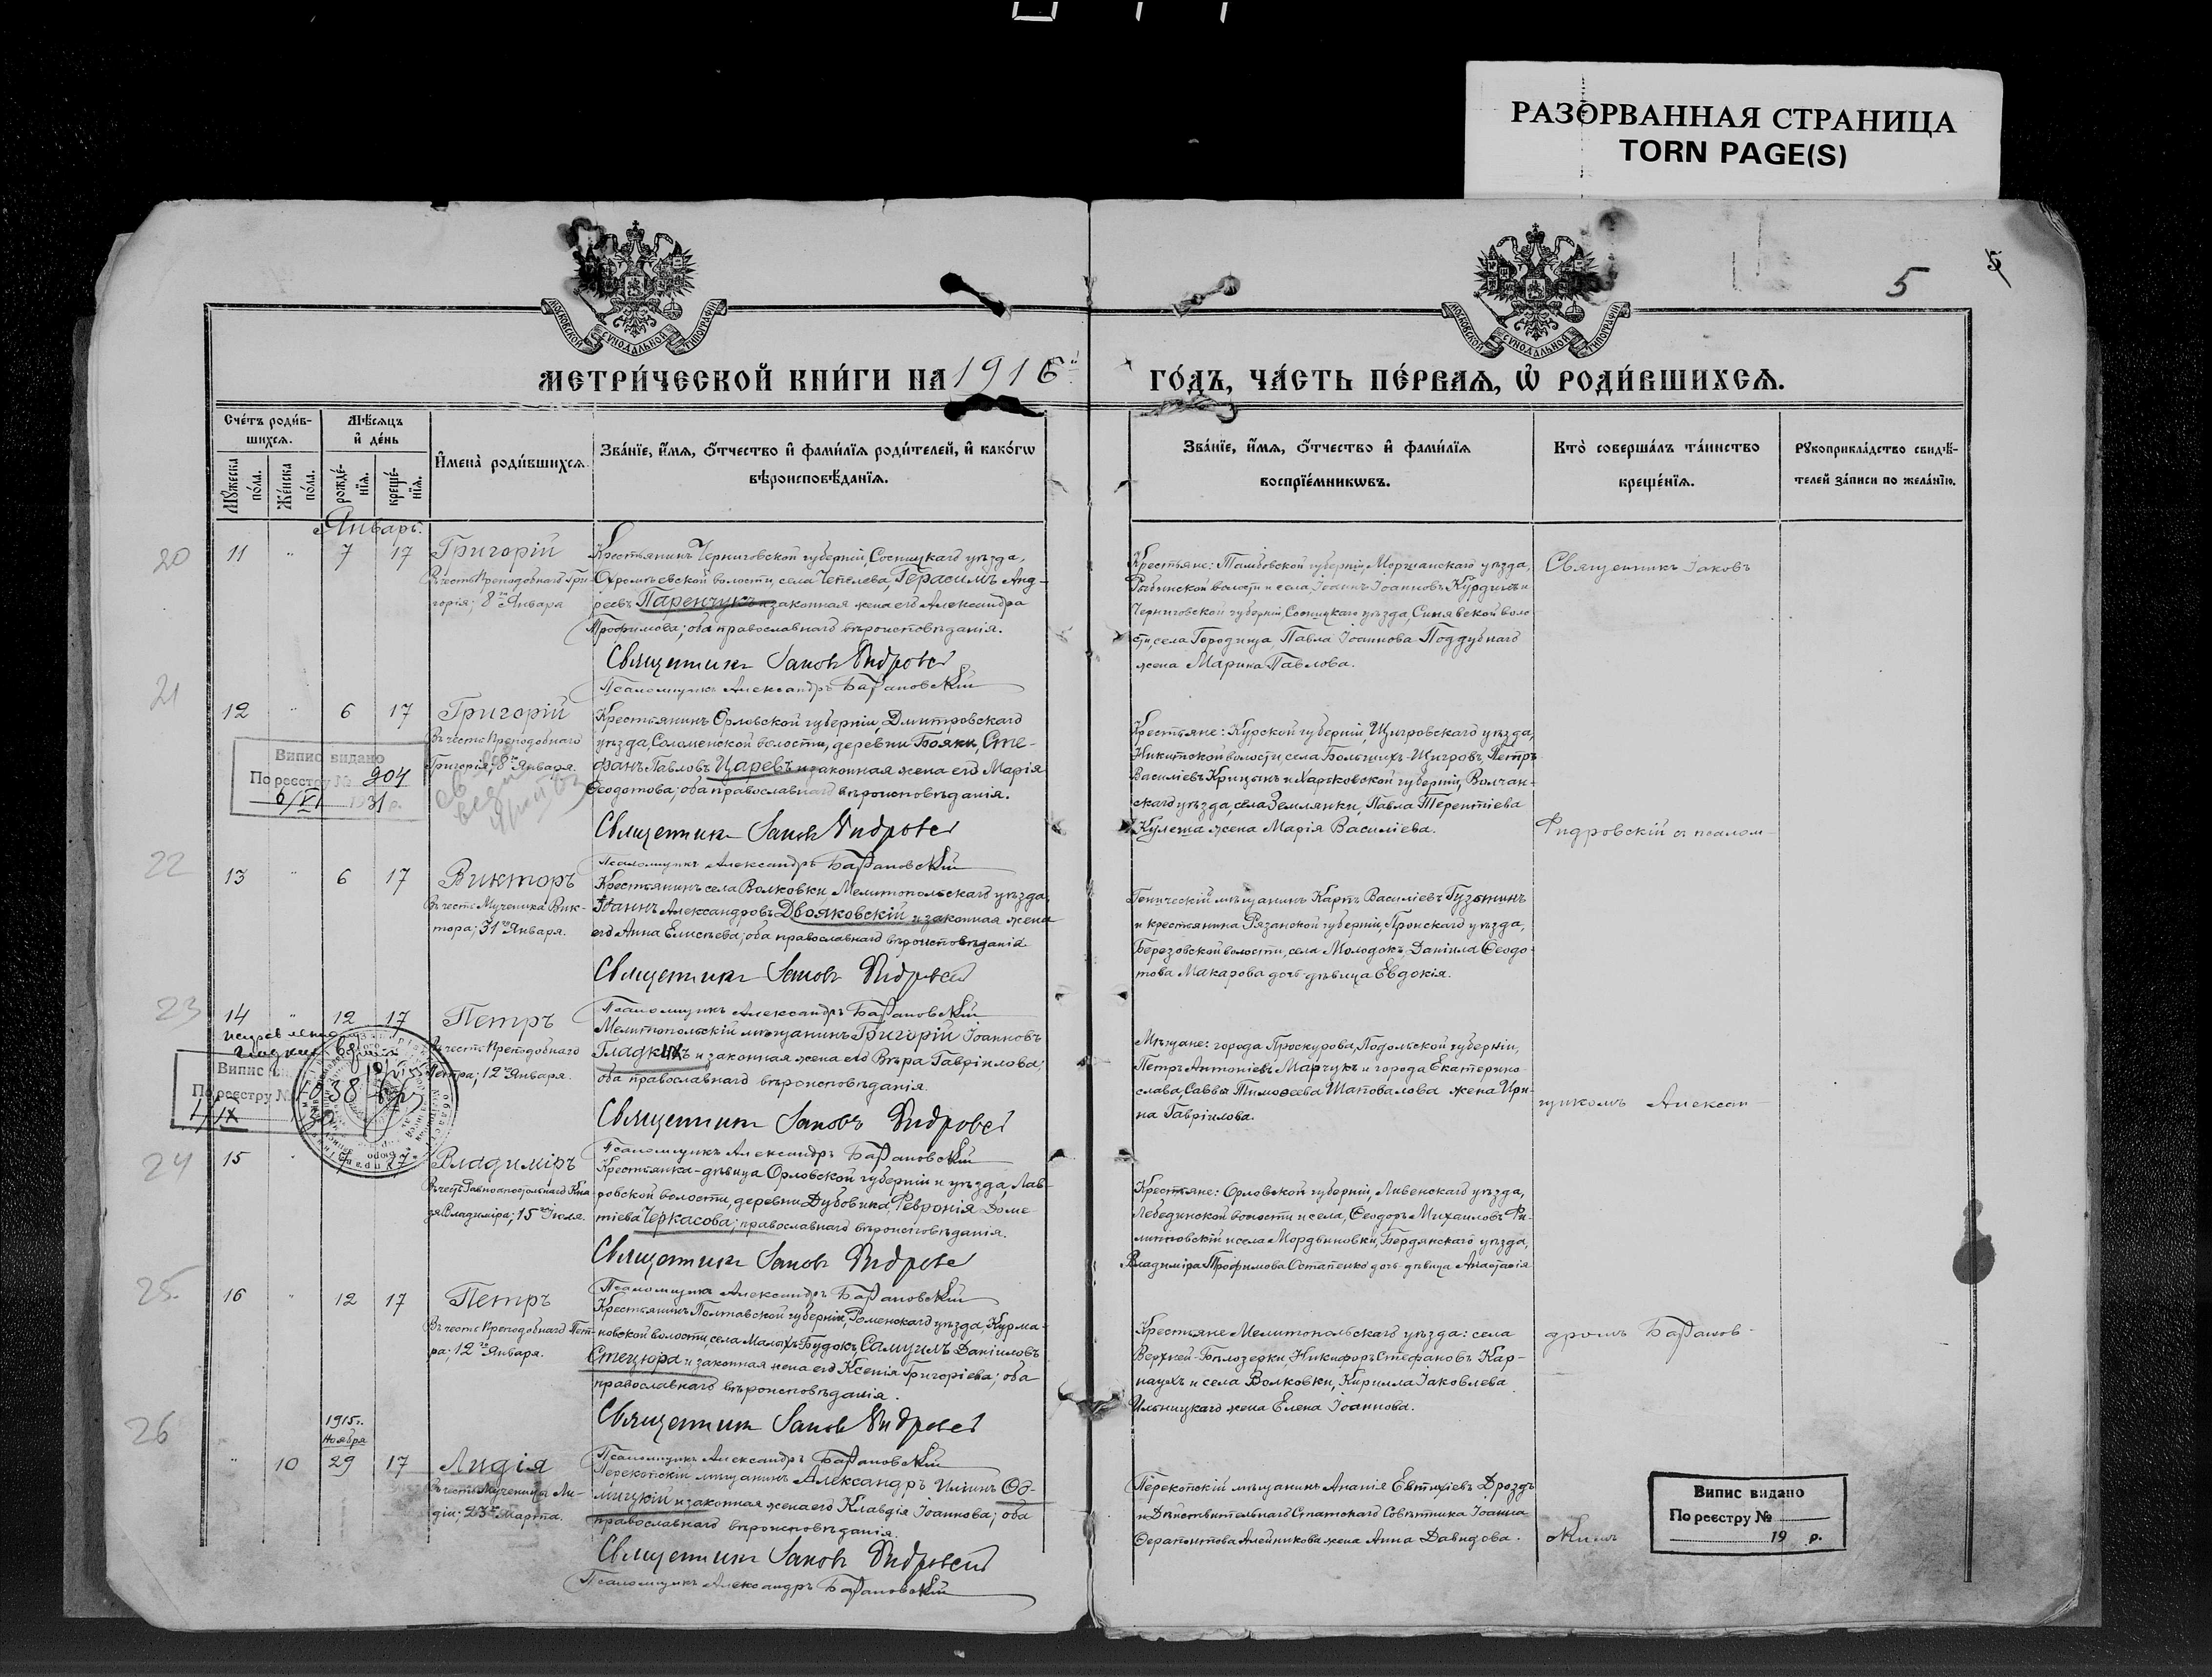 РАЗОРВАННАЯ СТРАНИЦА
TORN PAGE(S)
МОСКОВСКОЙ СУНОДАЛЬНОЙ ТИПОГРАФІИ
МОСКОВСКОЙ СУНОДАЛЬНОЙ ТИПОГРАФІИ
5
5
МЕТРИ́ЧЕСКОЙ КНИ́ГИ НА 1916й
ГО́ДЪ, ЧА́СТЬ ПЕ́РВАЯ, Ѡ РОДИ́ВШИХСЯ.
Сче́тъ роди́в-
шихся.
Мѣ́сяцъ
и҆ де́нь
И҆мена̀ роди́вшихся.
Зва́нїе, и҆́мя, ѻ҆́тчество и҆ фами́лїя роди́телей, и҆ како́гѡ
вѣроисповѣ́данїя.
Мꙋ́жеска по́ла.
Же́нска по́ла.
рожде́-нїя.
креще́-нїя.
Зва́нїе, и҆́мя, ѻ҆́тчество и҆ фами́лїя
воспрїе́мникѡвъ.
Кто̀ соверша́лъ та́инство
креще́нїя.
Рꙋкоприкла́дство свидѣ́-
телей за́писи по жела́нїю.
Январь.
20 11 " 7 17 Григорій
Въ честь Преподобнаго Гри-
горія; 8го Января
Крестьянинъ Черниговской губерніи, Сосницкаго уѣзда,
Охромѣевской волости, села Чепелева, Герасимъ Анд-
реевъ Паренчукъ и законная жена его Александра
Трофимова; оба православнаго вѣроисповѣданія.
Священникъ Іаковъ Фидровскі
Псаломщикъ Александръ Барановскій
Крестьяне: Тамбовской губерніи, Моршанскаго уѣзда,
волости и села, Іоаннъ Іоанновъ и
Черниговской губерніи, Сосницкаго уѣзда, Синявской воло-
сти, села Городища, Павла Іоаннова Поддубнаго
жена Марина Павлова.
Священникъ Іаковъ
21 12 " 6 17 Григорій
Въ честь Преподобнаго
Григорія; 8го Января.
Випис видано
По реєстру № 204
6/VI 1931 р.
Крестьянинъ Орловской губерніи, Дмитровскаго
уѣзда, Соломенской волости, деревни Бояки, Сте-
фанъ Павловъ Царевъ и законная жена его Марія
Ѳеодотова; оба православнаго вѣроисповѣданія.
Священникъ Іаковъ Фидровскі
Псаломщикъ Александръ Барановскій
Крестьяне: Курской губерніи, Щигровскаго уѣзда,
Никитской волости, села Большихъ-Щигровъ, Петръ
Василіевъ Крицынъ и Харьковской губерніи, Волчан-
скаго уѣзда, села Землянки, Павла Терентіева
Кулеша жена Марія Василіева.
Фидровскій съ псалом-
22 13 " 6 17 Викторъ
Въ честь Мученика Вик-
тора; 31го Января.
Крестьянинъ села Волковки, Мелитопольскаго уѣзда,
Іоаннъ Александровъ Двояковскій и законная жена
его Анна Елисѣева; оба православнаго вѣроисповѣданія.
Священникъ Іаковъ Фидровскі
Псаломщикъ Александръ Барановскій
Геническій мѣщанинъ Карпъ Василіевъ
и крестьянина Рязанской губерніи, Пронскаго уѣзда,
Березовской волости, села Молодокъ, Даніила Ѳеодо-
това Макарова дочь-дѣвица Евдокія.
23 14 " 12 17 Петръ
Въ честь Преподобнаго
Петра; 12го Января.
Випис
По реєстру № 1038
Мелитопольскій мѣщанинъ Григорій Іоанновъ
Гладкихъ и законная жена его Вѣра Гавріилова;
оба православнаго вѣроисповѣданія.
Священникъ Іаковъ Фидровскі
Псаломщикъ Александръ Барановскій
Мѣщане: города Проскурова, Подольской губерніи,
Петръ Антоніевъ Марчукъ и города Екатерино-
слава, Саввы Тимоѳеева Шаповалова жена Ири-
на Гавріилова.
щикомъ Алексан-
24 15 " 17 Владиміръ
Въ честь Равноапостольнаго Кня-
зя Владиміра; 15го Іюля.
Крестьянка-дѣвица Орловской губерніи и уѣзда, Лав-
ровской волости, деревни Дубовика, Февронія Доме-
тіева Черкасова; православнаго вѣроисповѣданія.
Священникъ Іаковъ Фидровскі
Псаломщикъ Александръ Барановскій
Крестьяне: Орловской губерніи, Ливенскаго уѣзда,
Лебединской волости и села, Ѳеодоръ Михаиловъ Фи-
липповскій и села Мордвиновки, Бердянскаго уѣзда,
Владиміра Трофимова Остапенко дочь-дѣвица Анастасія
25. 16 " 12 17 Петръ
Въ честь Преподобнаго Пет-
ра; 12го Января.
Крестьянинъ Полтавской губерніи, Роменскаго уѣзда, Курма-
новской волости, села Малыхъ-Будокъ, Самуилъ Даніиловъ
Стецюра и законная жена его Ксенія Григоріева; оба
православнаго вѣроисповѣданія.
Священникъ Іаковъ Фидровскі
Псаломщикъ Александръ Барановскій
Крестьяне Мелитопольскаго уѣзда: села
Верхней-Бѣлозерки, Никифоръ Стефановъ Кар-
наухъ и села Волковки, Кирилла Іаковлева
Ильницкаго жена Елена Іоаннова.
дромъ Баранов-
26 " 10 1915г. Ноября 29 17 Лидія
Въ честь Мученицы Ли-
діи; 23го Марта.
Перекопскій мѣщанинъ Александръ Ильинъ Об-
мицкій и законная жена его Клавдія Іоаннова; оба
православнаго вѣроисповѣданія.
Священникъ Іаковъ Фидровскій
Псаломщикъ Александръ Барановскій
Перекопскій мѣщанинъ Ананія Евтихіевъ Дроздъ
и Дѣйствительнаго Статскаго Совѣтника Іоанна
Ѳерапонтова Алейникова жена Анна Давидова.
скимъ
Випис видано
По реєстру №
19 р.